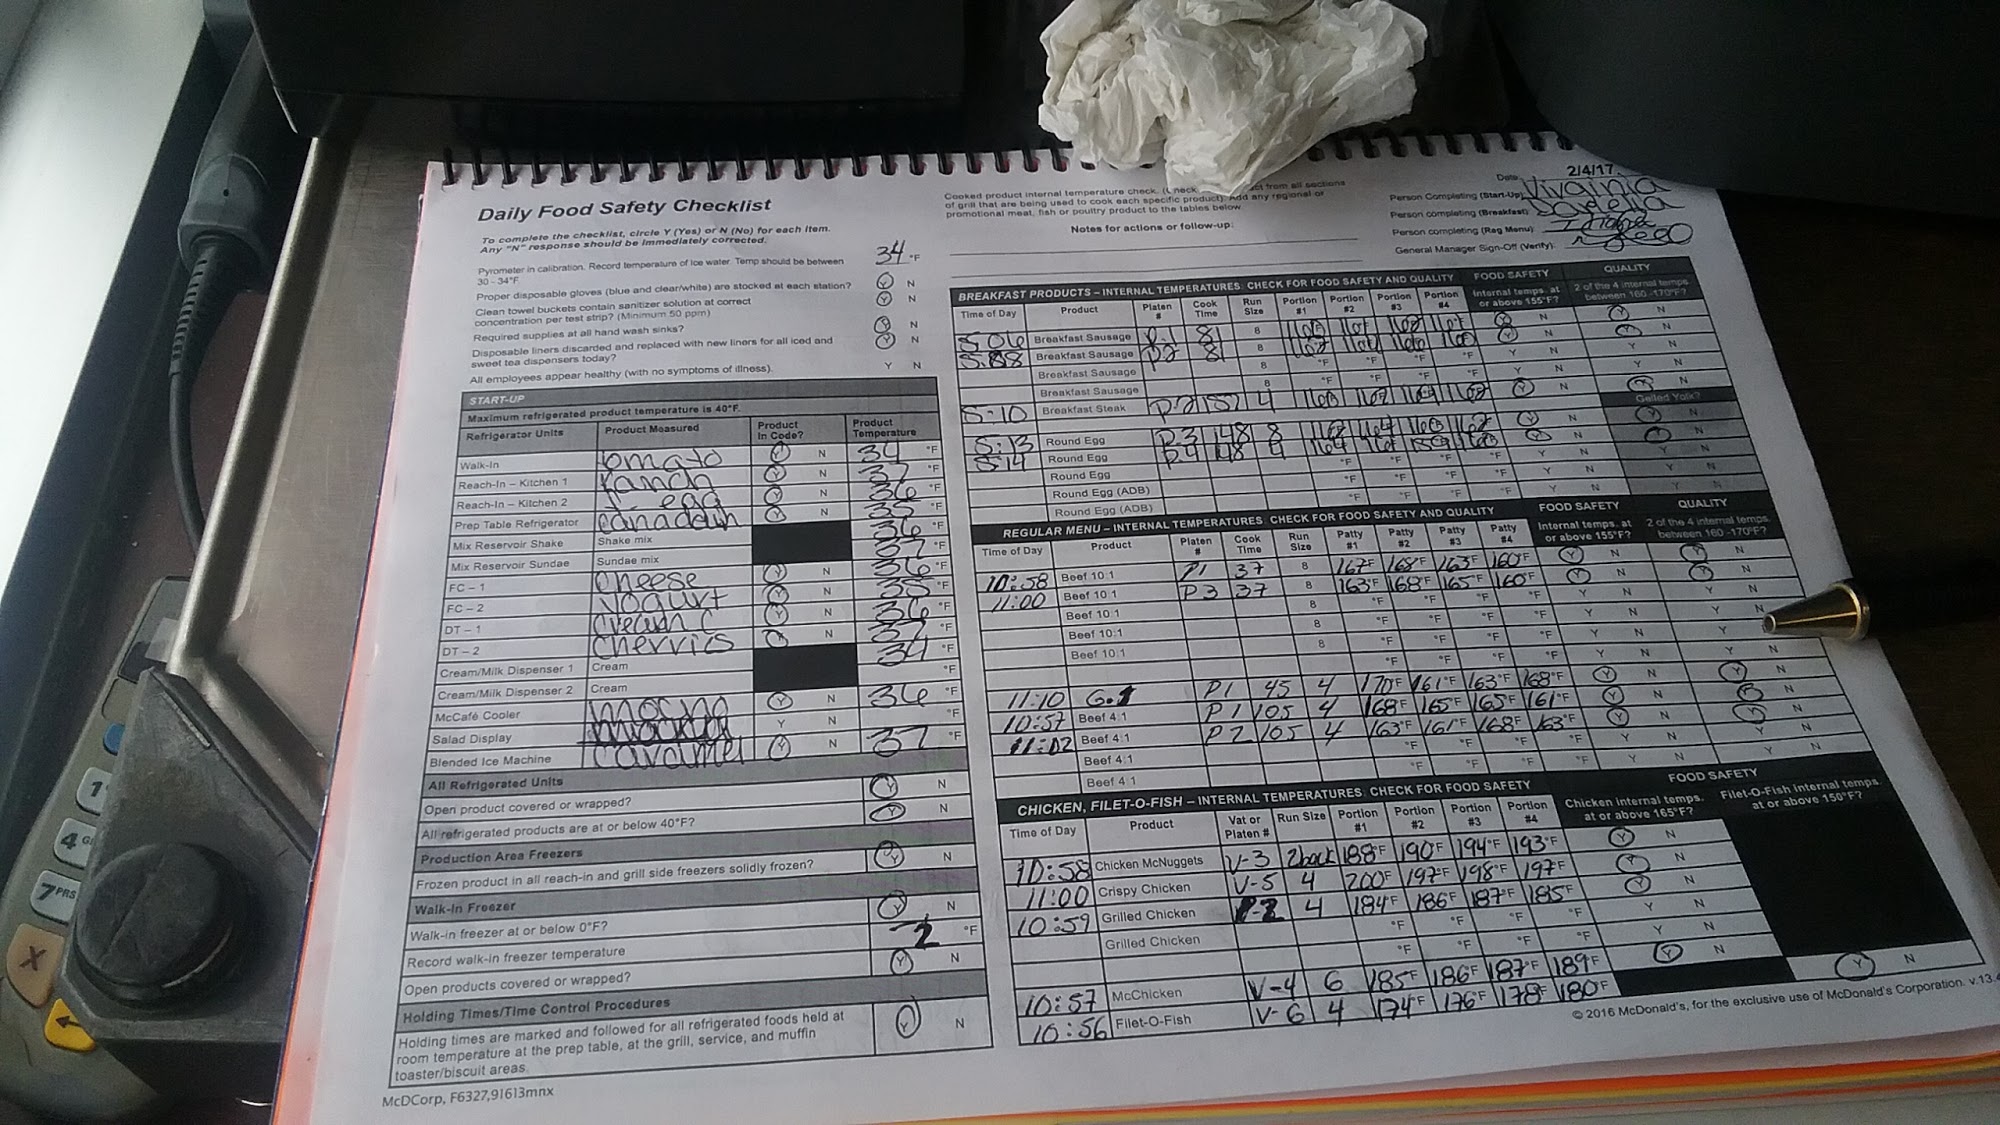 Daily Food Safety Checklist
To complete the checklist, circle Y (Yes) or N (No) for each item.
Any "N" response should be immediately corrected.
Pyrometer in calibration. Record temperature of ice water. Temp should be between 30 - 34°F. 34 °F
Proper disposable gloves (blue and clear/white) are stocked at each station? Y N
Clean towel buckets contain sanitizer solution at correct
concentration per test strip? (Minimum 50 ppm) Y N
Required supplies at all hand wash sinks? Y N
Disposable liners discarded and replaced with new liners for all iced and
sweet tea dispensers today? Y N
All employees appear healthy (with no symptoms of illness). Y N
START-UP
Maximum refrigerated product temperature is 40°F.
Refrigerator Units Product Measured Product In Code? Product Temperature
Walk-In tomato Y N 34 °F
Reach-In – Kitchen 1 ranch Y N 37 °F
Reach-In – Kitchen 2 egg Y N 36 °F
Prep Table Refrigerator Y N 35 °F
Mix Reservoir Shake Shake mix 36 °F
Mix Reservoir Sundae Sundae mix 37 °F
FC – 1 cheese Y N 36 °F
FC – 2 yogurt Y N 35 °F
DT – 1 Y N 36 °F
DT – 2 cherries Y N 37 °F
Cream/Milk Dispenser 1 Cream 34 °F
Cream/Milk Dispenser 2 Cream °F
McCafé Cooler mocha Y N 36 °F
Salad Display Y N °F
Blended Ice Machine caramel Y N 37 °F
All Refrigerated Units
Open product covered or wrapped? Y N
All refrigerated products are at or below 40°F? Y N
Production Area Freezers
Frozen product in all reach-in and grill side freezers solidly frozen? Y N
Walk-In Freezer
Walk-in freezer at or below 0°F? Y N
Record walk-in freezer temperature -2 °F
Open products covered or wrapped? Y N
Holding Times/Time Control Procedures
Holding times are marked and followed for all refrigerated foods held at
room temperature at the prep table, at the grill, service, and muffin
toaster/biscuit areas. Y N
McDCorp, F6327,91613mnx
Cooked product internal temperature check. from all sections
of grill that are being used to cook each specific product). Add any regional or
promotional meat, fish or poultry product to the tables below.
Notes for actions or follow-up:
Date: 2/4/17
Person Completing (Start-Up): Virginia
Person completing (Breakfast):
Person completing (Reg Menu):
General Manager Sign-Off (Verify):
BREAKFAST PRODUCTS – INTERNAL TEMPERATURES: CHECK FOR FOOD SAFETY AND QUALITY FOOD SAFETY QUALITY
Time of Day Product Platen # Cook Time Run Size Portion #1 Portion #2 Portion #3 Portion #4 Internal temps. at or above 155°F? 2 of the 4 internal temps. between 160 -170°F?
5:06 Breakfast Sausage P-1 8 Y N Y N
Breakfast Sausage P-2 8 Y N Y N
Breakfast Sausage 8 °F °F °F °F Y N Y N
Breakfast Sausage 8 °F °F °F °F Y N Y N
5:10 Breakfast Steak P-2 4 Y N Y N
Gelled Yolk?
5:13 Round Egg P-3 148 8 Y N Y N
5:14 Round Egg P-4 148 Y N Y N
Round Egg °F °F °F °F Y N Y N
Round Egg (ADB) °F °F °F °F Y N Y N
Round Egg (ADB) °F °F °F °F Y N Y N
REGULAR MENU – INTERNAL TEMPERATURES: CHECK FOR FOOD SAFETY AND QUALITY FOOD SAFETY QUALITY
Time of Day Product Platen # Cook Time Run Size Patty #1 Patty #2 Patty #3 Patty #4 Internal temps. at or above 155°F? 2 of the 4 internal temps. between 160 -170°F?
10:58 Beef 10:1 P1 37 8 167°F 168°F 163°F 160°F Y N Y N
11:00 Beef 10:1 P3 37 8 163°F 168°F 165°F 160°F Y N Y N
Beef 10:1 8 °F °F °F °F Y N Y N
Beef 10:1 8 °F °F °F °F Y N Y N
Beef 10:1 8 °F °F °F °F Y N Y N
11:10 6.1 P1 45 4 170°F 161°F 163°F 168°F Y N Y N
10:57 Beef 4:1 P1 105 4 168°F 165°F 165°F 161°F Y N Y N
11:02 Beef 4:1 P2 105 4 163°F 161°F 168°F 163°F Y N Y N
Beef 4:1 °F °F °F °F Y N Y N
Beef 4:1 °F °F °F °F Y N Y N
CHICKEN, FILET-O-FISH – INTERNAL TEMPERATURES: CHECK FOR FOOD SAFETY FOOD SAFETY
Time of Day Product Vat or Platen # Run Size Portion #1 Portion #2 Portion #3 Portion #4 Chicken internal temps. at or above 165°F? Filet-O-Fish internal temps. at or above 150°F?
10:58 Chicken McNuggets V-3 188°F 190°F 194°F 193°F Y N
11:00 Crispy Chicken V-5 4 200°F 197°F 198°F 197°F Y N
10:59 Grilled Chicken P-2 4 184°F 186°F 187°F 185°F Y N
Grilled Chicken °F °F °F °F Y N
10:57 McChicken V-4 6 185°F 186°F 187°F 189°F Y N
10:56 Filet-O-Fish V-6 4 174°F 176°F 178°F 180°F Y N
© 2016 McDonald's, for the exclusive use of McDonald's Corporation. v.13.4
1
4
7 PRS
X